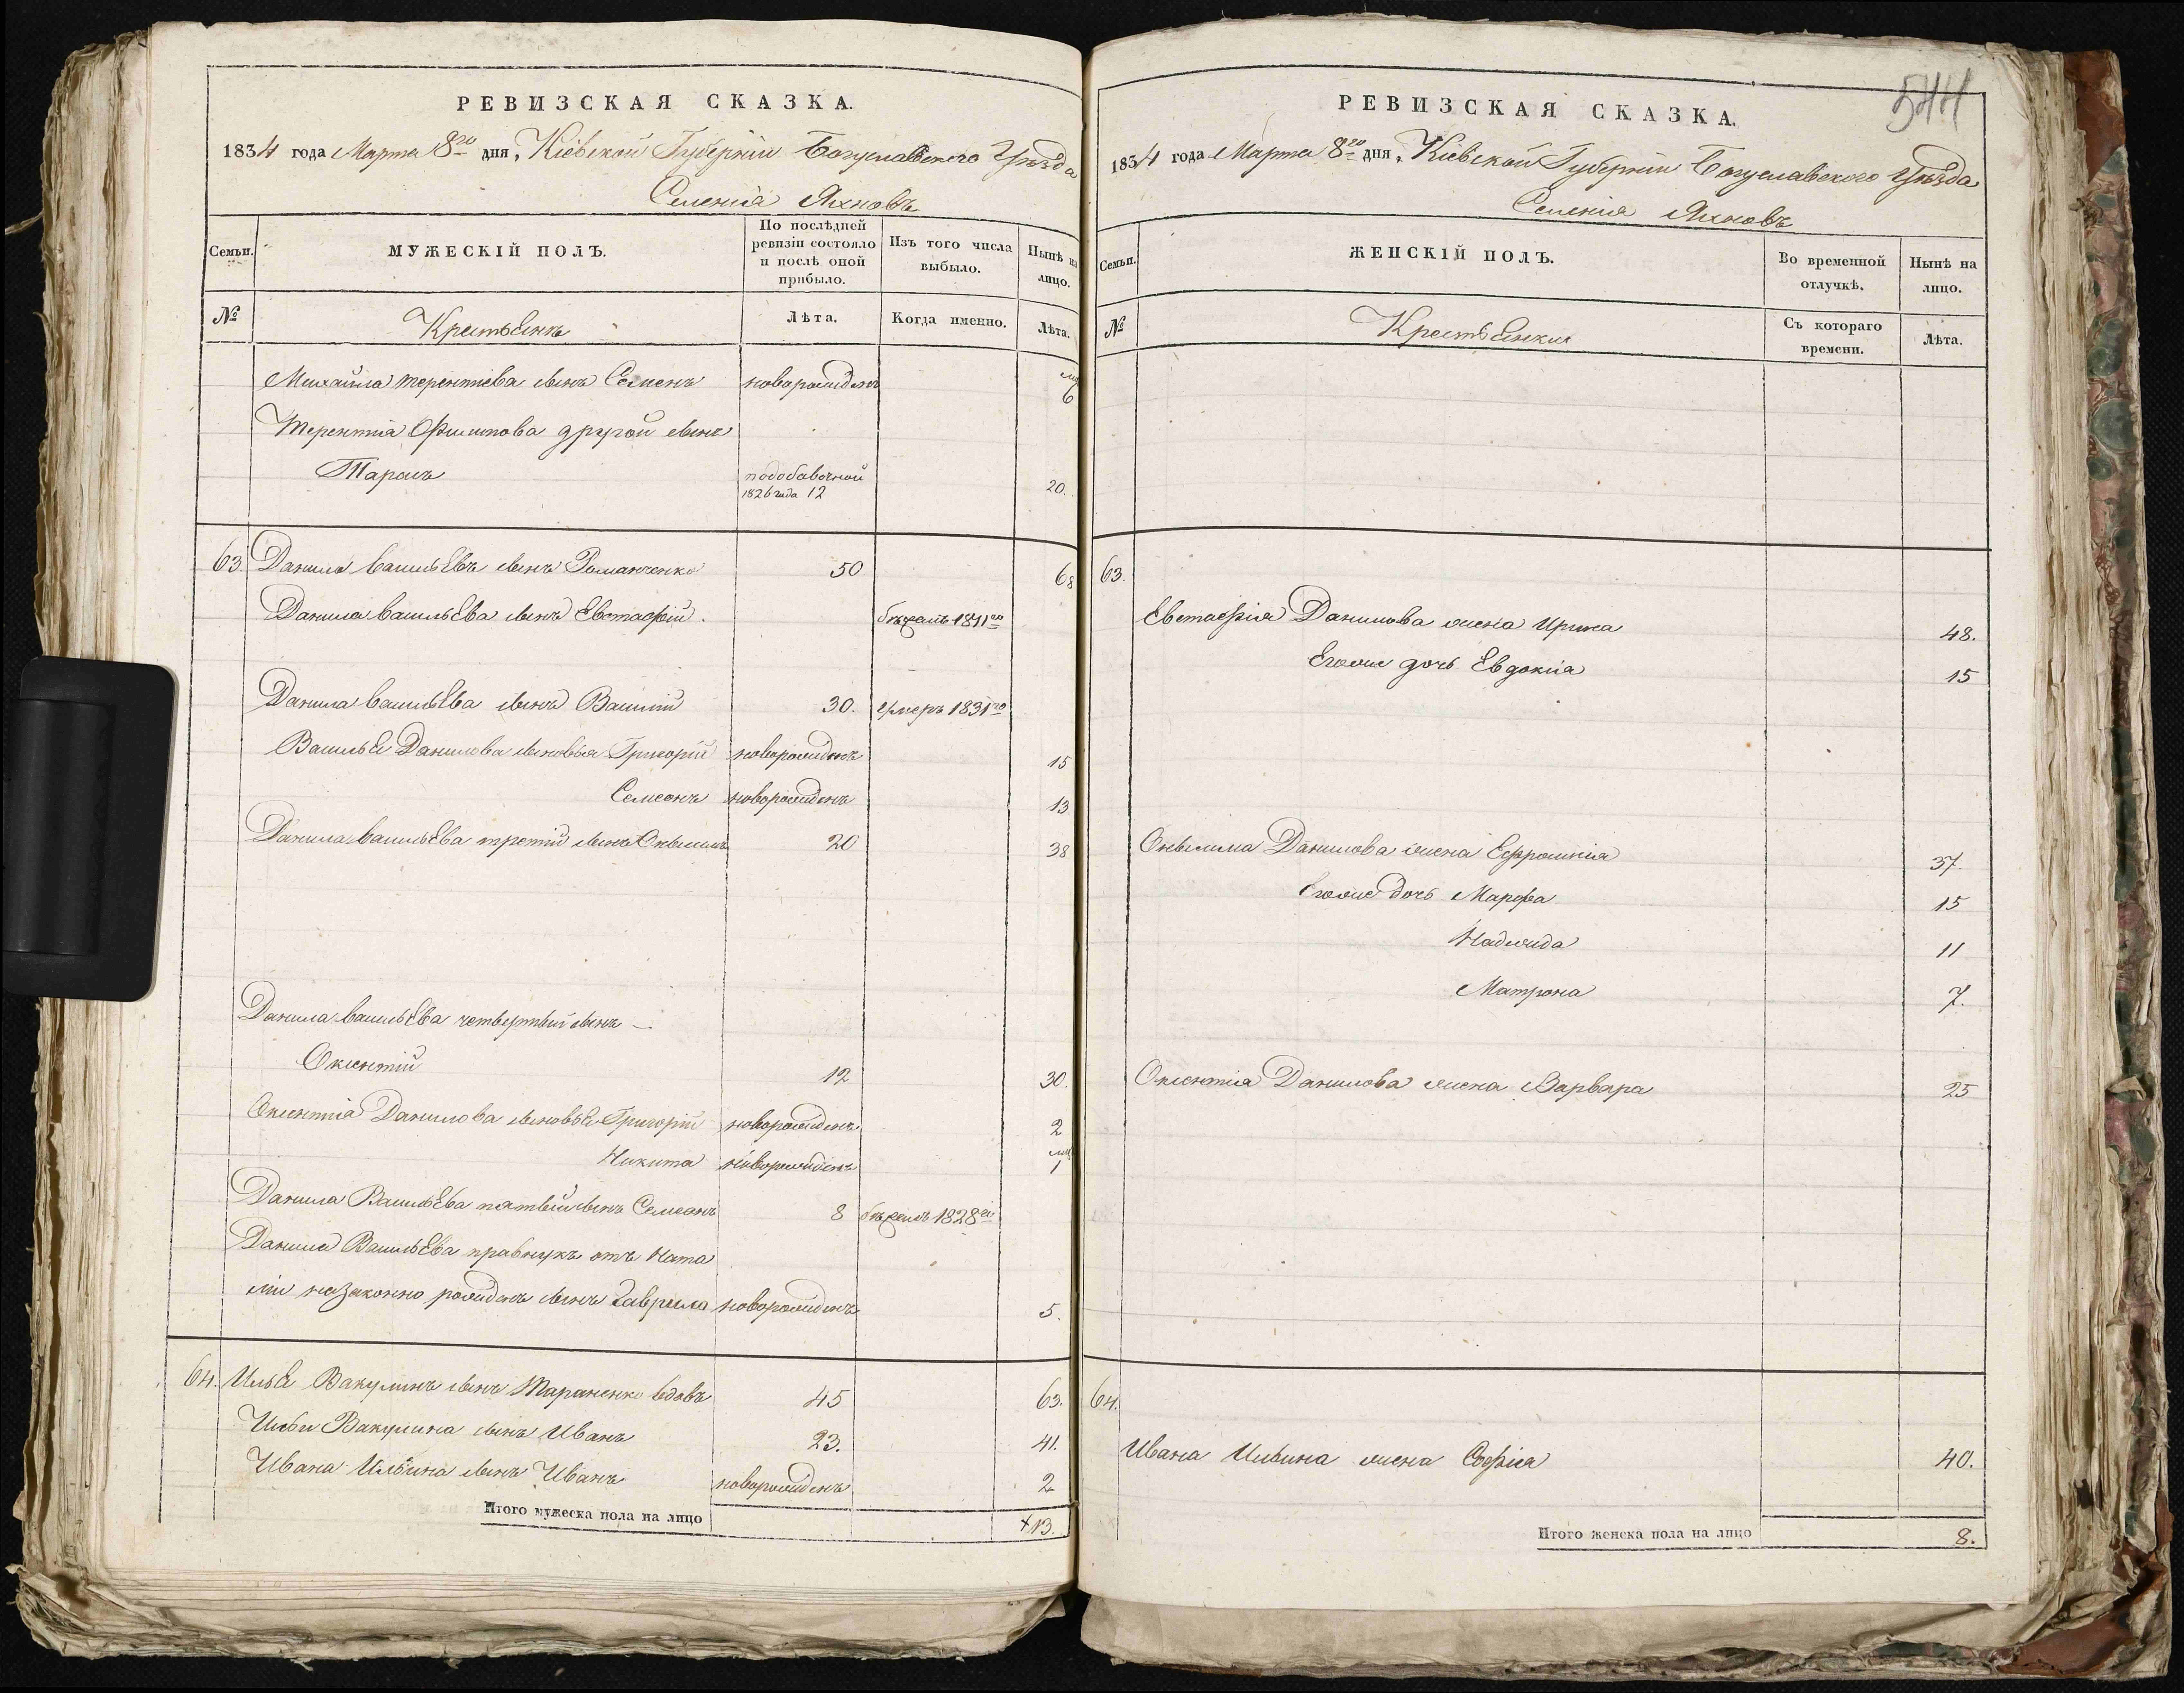 РЕВИЗСКАЯ СКАЗКА.
1834 года Марта 8го дня, Кіевской Губерніи Богуславского Уѣзда
Селенія Яхновъ
Семьи.
МУЖЕСКІЙ ПОЛЪ.
По послѣдней ревизіи состояло и послѣ оной прибыло.
Изъ того числа выбыло.
Нынѣ на лицо.
№
Крестьянъ
Лѣта.
Когда именно.
Лѣта.
Михайла терентіева сынъ Семенъ новорожденъ 6
Терентія Филипова другой сынъ
Тарасъ подобавочной 1826 года 12 20.
63. Данило васильевъ сынъ Романченко 50 68
Данила васильева сынъ Евстафій. бѣжалъ 1811го
Данила васильева сынъ Василій 30. умеръ 1831го
Василья Данилова сыновья Григорій новорожденъ 15
Семеонъ новорожденъ 13
Данила васильева третій сынъ 20 38
Данила васильева четвертый сынъ
Оксентій 12 30.
Оксентія Данилова сыновья Григорій новорожденъ 2
Никита новорожденъ 1
Данила Васильева пятый сынъ Семеонъ 8 бѣжалъ 1828го
Данила Васильева правнукъ отъ Ната
ліи незаконно рожденъ сынъ Гаврило новорожденъ 5.
64. Илья Вакулинъ сынъ Тараненко вдовъ 45 63.
Ильи Вакулина сынъ Иванъ 23. 41.
Ивана Ильина сынъ Иванъ новорожденъ 2
Итого мужеска пола на лицо 13.
544
РЕВИЗСКАЯ СКАЗКА.
1834 года Марта 8го дня, Кіевской Губерніи Богуславского Уѣзда
Селенія Яхновъ
Семьи.
ЖЕНСКІЙ ПОЛЪ.
Во временной отлучкѣ.
Нынѣ на лицо.
№
Крестьянки
Съ котораго времени.
Лѣта.
63.
Евстафія Данилова жена Ирина 48.
Егоже дочь Евдокія 15
Данилова жена Ефросинія 37.
Егоже дочь Марфа 15
Надежда 11
Матрона 7.
Оксентія Данилова жена Варвара 25
64.
Ивана Ильина жена Софія 40.
Итого женска пола на лицо 8.